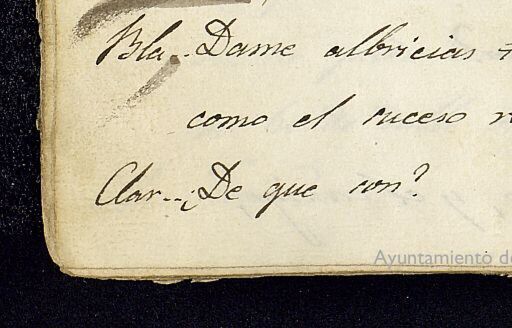 Bla.. Dame albricias
como el suceso
Clar... ¿De que son?
Ayuntamiento de